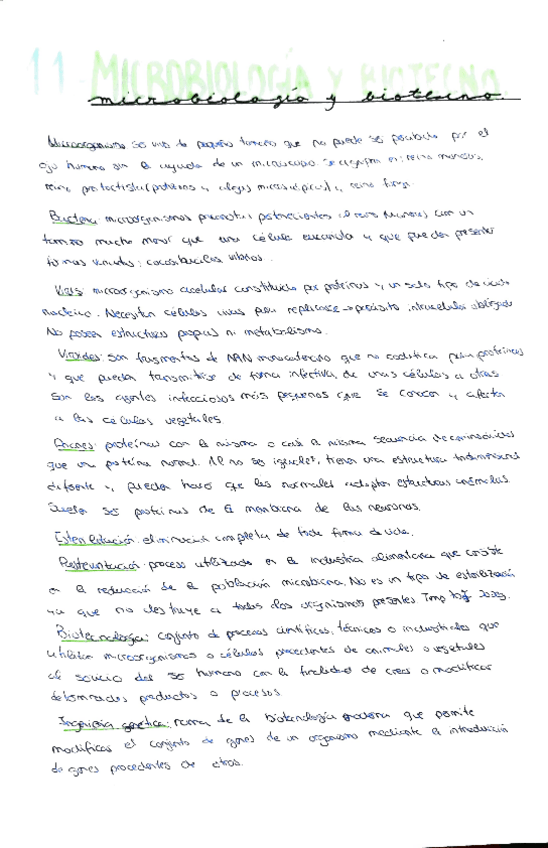 11. MICROBIOLOGÍA Y BIOTECNO.
microbiología y biotecno.
Microorganismo: ser vivo de pequeño tamaño que no puede ser percibido por el
ojo humano sin la ayuda de un microscopio. Se agrupan en: reino moneras,
reino protoctista (protozoos y algas microscópicas) y reino fungi.
Bacteria: microorganismos procariotas pertenecientes al reino Moneras con un
tamaño mucho menor que una célula eucariota y que pueden presentar
formas variadas: cocos, bacilos, vibrios.
Virus: microorganismo acelular constituido por proteínas y un solo tipo de ácido
nucleico. Necesitan células vivas para replicarse → parásito intracelular obligado
No poseen estructuras propias ni metabolismo.
Viroides: son fragmentos de ARN monocatenario que no codifica para proteínas
y que pueden transmitirse de forma infectiva de unas células a otras
Son los agentes infecciosos más pequeños que se conocen y afecta
a las células vegetales
Priones: proteínas con la misma o casi la misma secuencia de aminoácidos
que una proteína normal. Al no ser iguales, tienen una estructura tridimensional
diferente y pueden hacer que las normales adopten estructuras anómalas
Suelen ser proteínas de la membrana de las neuronas.
Esterilización: eliminación completa de toda forma de vida.
Pasteurización: proceso utilizado en la industria alimentaria que consiste
en la reducción de la población microbiana. No es un tipo de esterilización
ya que no destruye a todos los organismos presentes
Biotecnología: conjunto de procesos científicos, técnicos o industriales que
utilizan microorganismos o células procedentes de animales o vegetales
al servicio del ser humano con la finalidad de crear o modificar
determinados productos o procesos.
Ingeniería genética: rama de la biotecnología moderna que permite
modificar el conjunto de genes de un organismo mediante la introducción
de genes procedentes de otros.